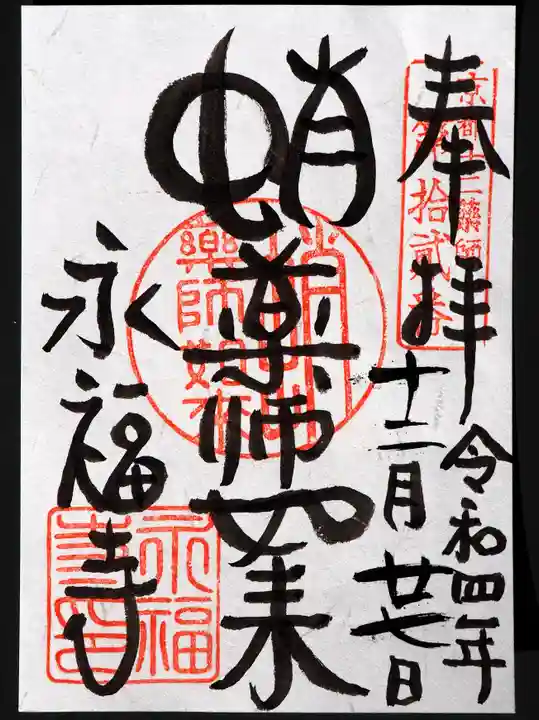 奉拝
令和四年
十二月廿七日
京都十二薬師
第拾貳番
蛸薬師如来
蛸薬師如来
永福寺
永福寺印